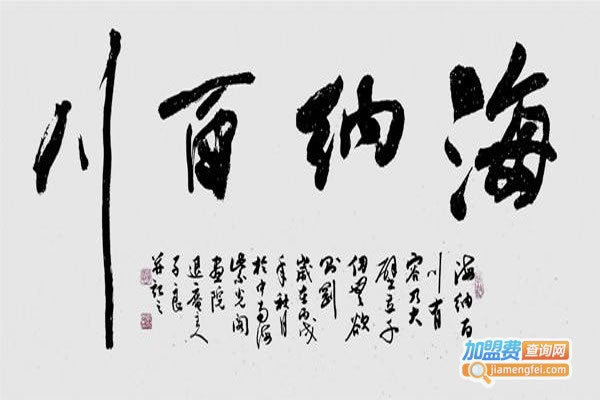 海纳百川
海纳百
川有
容乃大
壁立千
仞無欲
则刚
歲在丙戌
年秋月
於中南海
紫光阁
画院
人
子良
并記之
加盟费查询网
jiamengfei.com